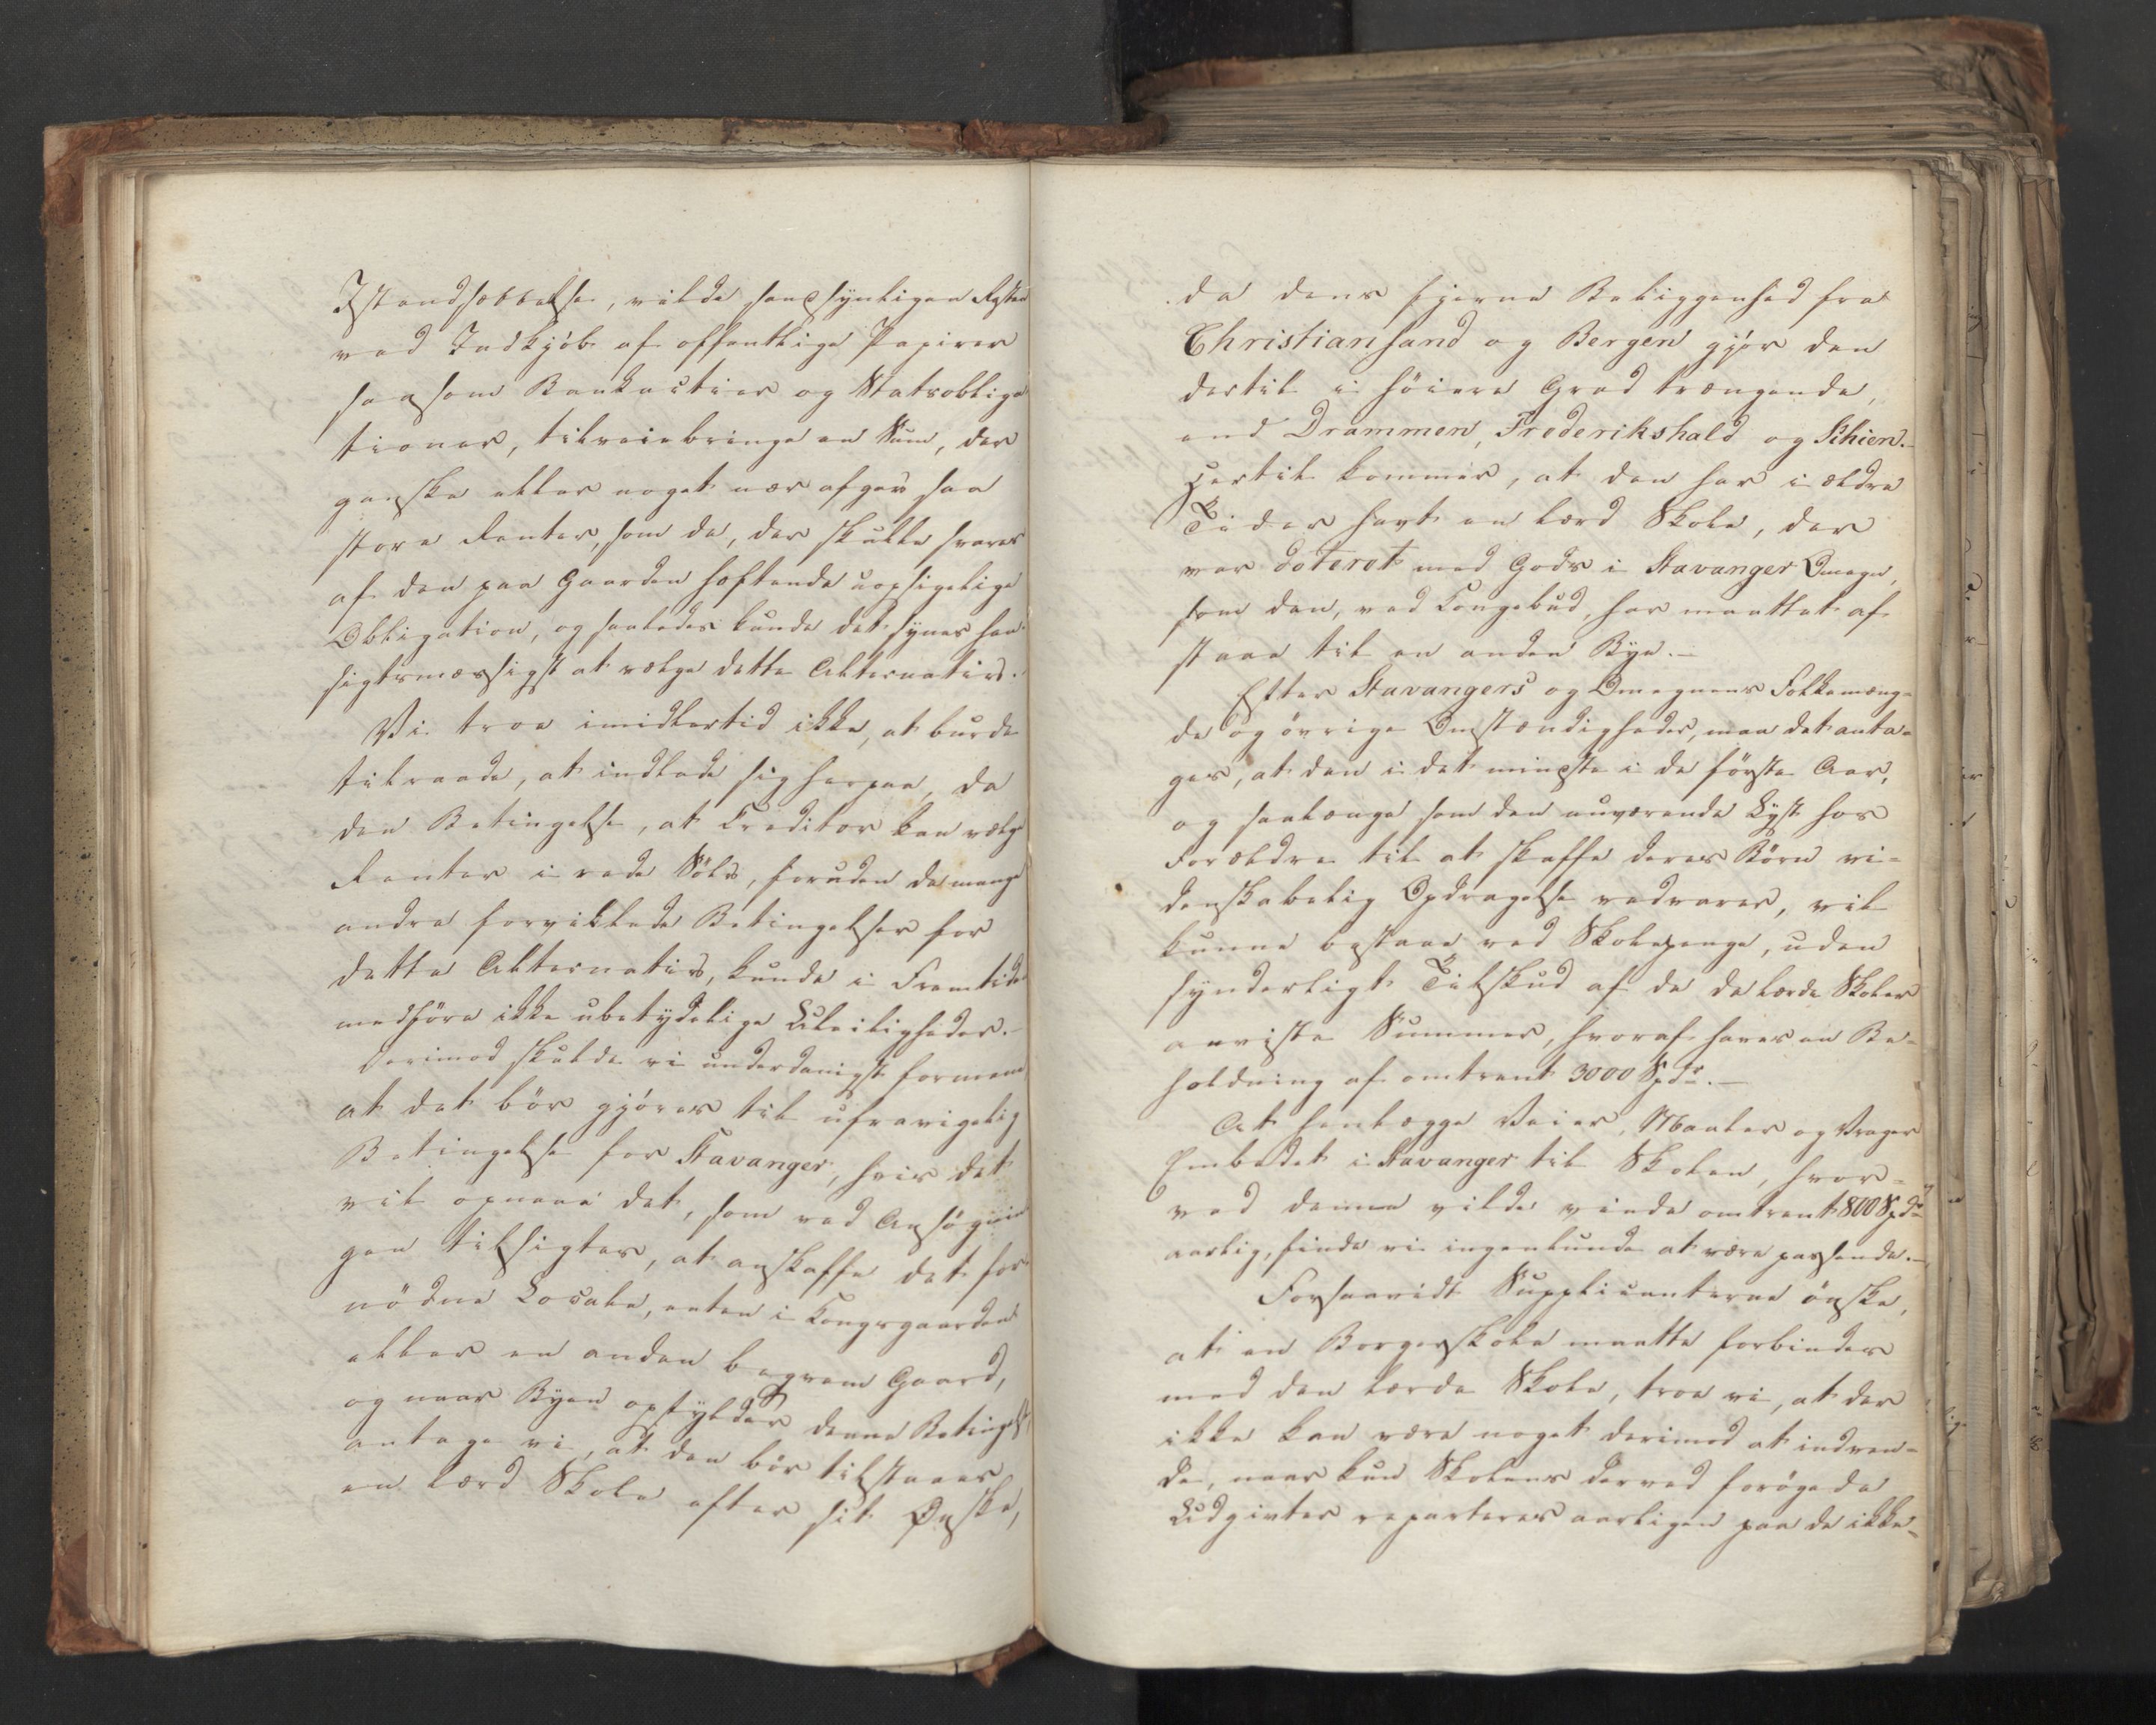 Istandsættelse, vilde sandsynligen Resten
ved Indkjöb af offentlige Papirer
saasom Bankactier og Statsobliga
tioner, tilveiebringe en Sum, der
ganske eller noget nær afgav saa
store Renter, som de, der skulle svares
af den paa Gaarden heftende uopsigelige
Obligation, og saaledes kunde det synes hen-
sigtsmæssigst at vælge dette Alternativ.
Vi troe imidlertid ikke, at burde
tilraade, at indlade sig herpaa, da
den Betingelse, at Creditor kan vælge
Renter i rede Sölv, foruden de mange
andre forviklede Betingelser for
dette Alternativ, kunde i Fremtiden
medföre ikke ubetydelige Uleiligheder.
Derimod skulde vi underdanigst formene
at det bör gjöres til ufravigelig
Betingelse for Stavanger, hvis det
vil opnaae det, som ved Ansögnin
gen tilsigtes, at anskaffe det for-
nödne Locale, enten i Kongsgaarden
eller en anden beqvem Gaard,
og naar Byen opfylder denne Betingelse,
antage vi, at den bör tilstaaes
en lærd Skole efter sit Ønske,
da dens fjerne Beliggenhed fra
Christiansand og Bergen gjör den
dertil i höiere Grad trængende,
end Drammen, Frederikshald og Schien.-
Hertil kommer, at den har i ældre
Tider havt en lærd Skole, der
var doteret med Gods i Stavanger Omegn,
som den, ved Kongebud, har maattet af-
staae til en anden Bye.-
Efter Stavangers og Omegnens Folkemæng-
de og övrige Omstændigheder, maa det anta-
ges, at den i det mindste i de förste Aar,
og saalænge som den nuværende Lyst hos
Forældre til at skaffe deres Börn vi-
denskabelig Opdragelse vedvarer, vil
kunne bestaae ved Skolepenge, uden
synderligt Tilskud af de de lærde Skoler
anviste Summer, hvoraf haves en Be-
holdning af omtrent 3000 Spdr.-
At henlægge Veier, Maaler og Vrager
Embedet i Stavanger til Skolen, hvor-
ved denne vilde vinde omtrent 800 Spdr
aarlig, finde vi ingenlunde at være passende.-
Forsaavidt Supplicanterne önske,
at en Borgerskole maatte forbindes
med den lærde Skole, troe vi, at der
ikke kan være noget derimod at indven-
de, naar kun Skolens derved forögede
Udgivter reparteres aarligen paa de ikke-